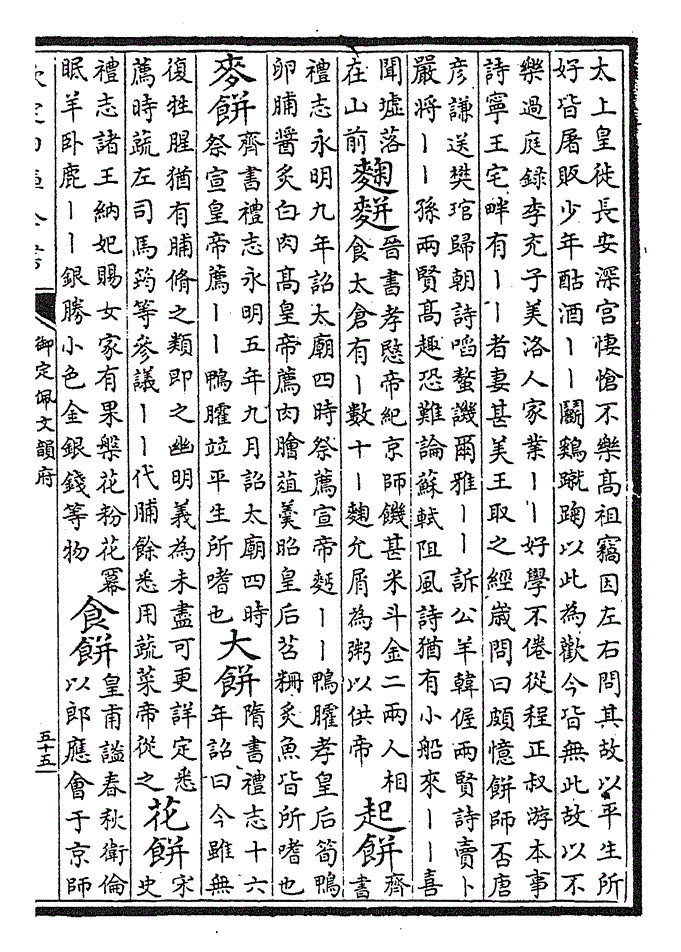 太上皇徙長安深宫悽愴不樂髙祖竊因左右問其故以平生所
好皆屠販少年酤酒丨丨鬭鷄蹴踘以此為歡今皆無此故以不
樂過庭錄李充子美洛人家業丨丨好學不倦從程正叔游本事
詩寧王宅畔有丨丨者妻甚美王取之經歲問曰頗憶餅師否唐
彦謙送樊琯歸朝詩啗螯譏爾雅丨丨訴公羊韓偓兩賢詩賣卜
嚴將丨丨孫兩賢髙趣恐難論蘇軾阻風詩猶有小船來丨丨喜
聞墟落
在山前
麴䴵
晉書孝愍帝紀京師饑甚米斗金二兩人相
食太倉有丨數十丨麴允屑為粥以供帝
起餅
齊
書
禮志永明九年詔太廟四時祭薦宣帝麫丨丨鴨臛孝皇后筍鴨
卵脯醬炙白肉髙皇帝薦肉膾葅羹昭皇后茗粣炙魚皆所嗜也
麥餅
齊書禮志永明五年九月詔太廟四時
祭宣皇帝薦丨丨鴨臛竝平生所嗜也
大餅
隋書禮志十六
年詔曰今雖無
復牲腥猶有脯脩之類即之幽明義為未盡可更詳定悉
薦時蔬左司馬筠等參議丨丨代脯餘悉用蔬菜帝從之
花餅
宋
史
禮志諸王納妃賜女家有果槃花粉花羃
眠羊卧鹿丨丨銀勝小色金銀錢等物
食餅
皇甫謐春秋衛倫
以郎應會于京師
欽定四庫全書
御定佩文韻府
五十五